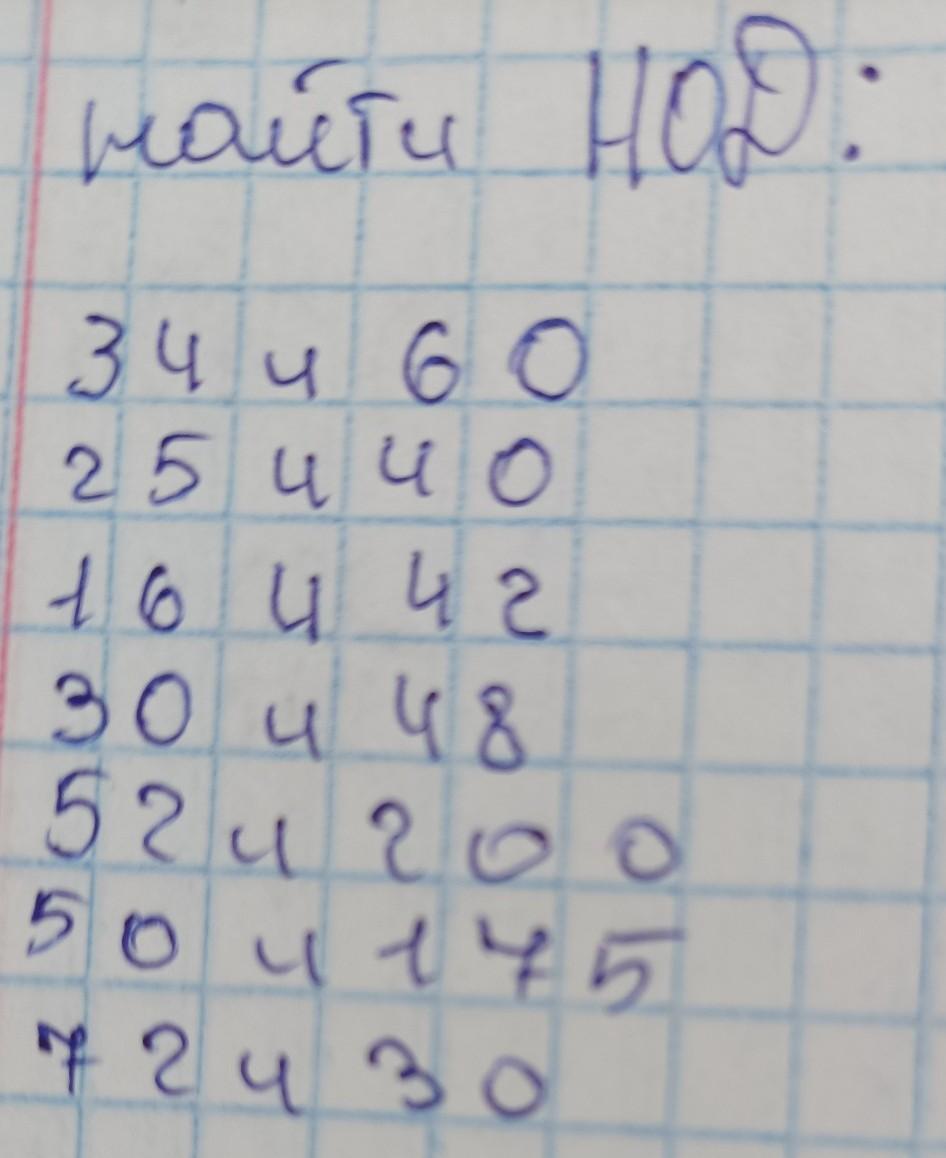 найти НОД:
34 и 60
25 и 40
16 и 42
30 и 48
52 и 200
50 и 175
72 и 30